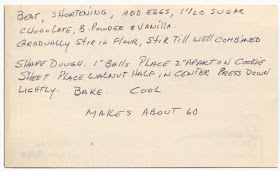 BEAT, SHORTENING, ADD EGGS, 1 1/2 C SUGAR
CHOCOLATE, B. POWDER & VANILLA.
GRADUALLY STIR IN FLOUR, STIR TILL WELL COMBINED
SHAPE DOUGH. 1" BALLS PLACE 2" APART ON COOKIE
SHEET PLACE WALNUT HALF, IN CENTER PRESS DOWN
LIGHTLY. BAKE. COOL
MAKES ABOUT 60